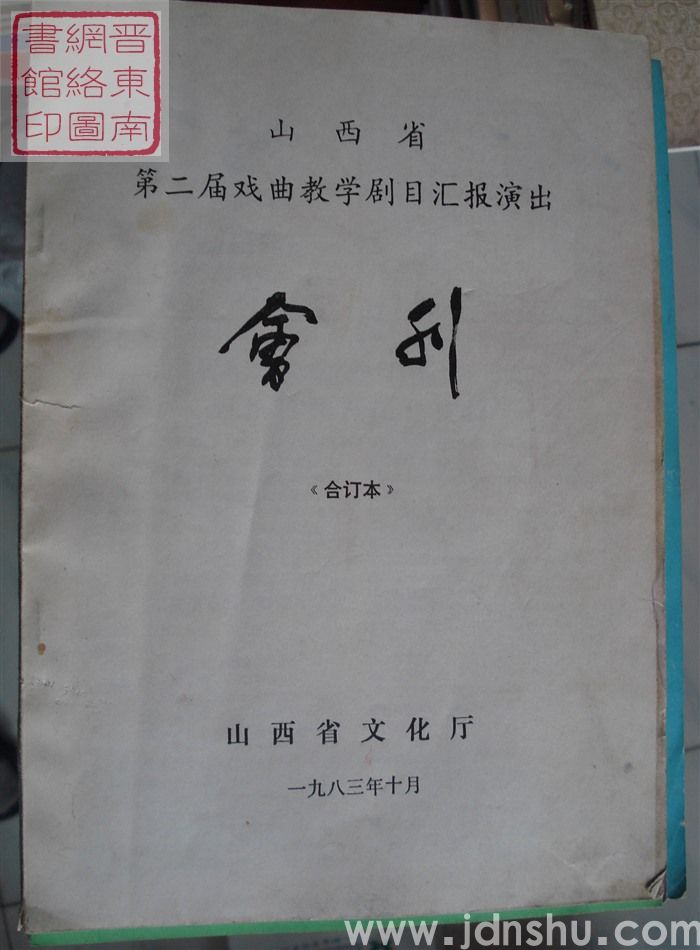 晋東南
網絡圖
書館印
山西省
第二届戏曲教学剧目汇报演出
會刊
《合订本》
山西省文化厅
一九八三年十月
www.jdnshu.com